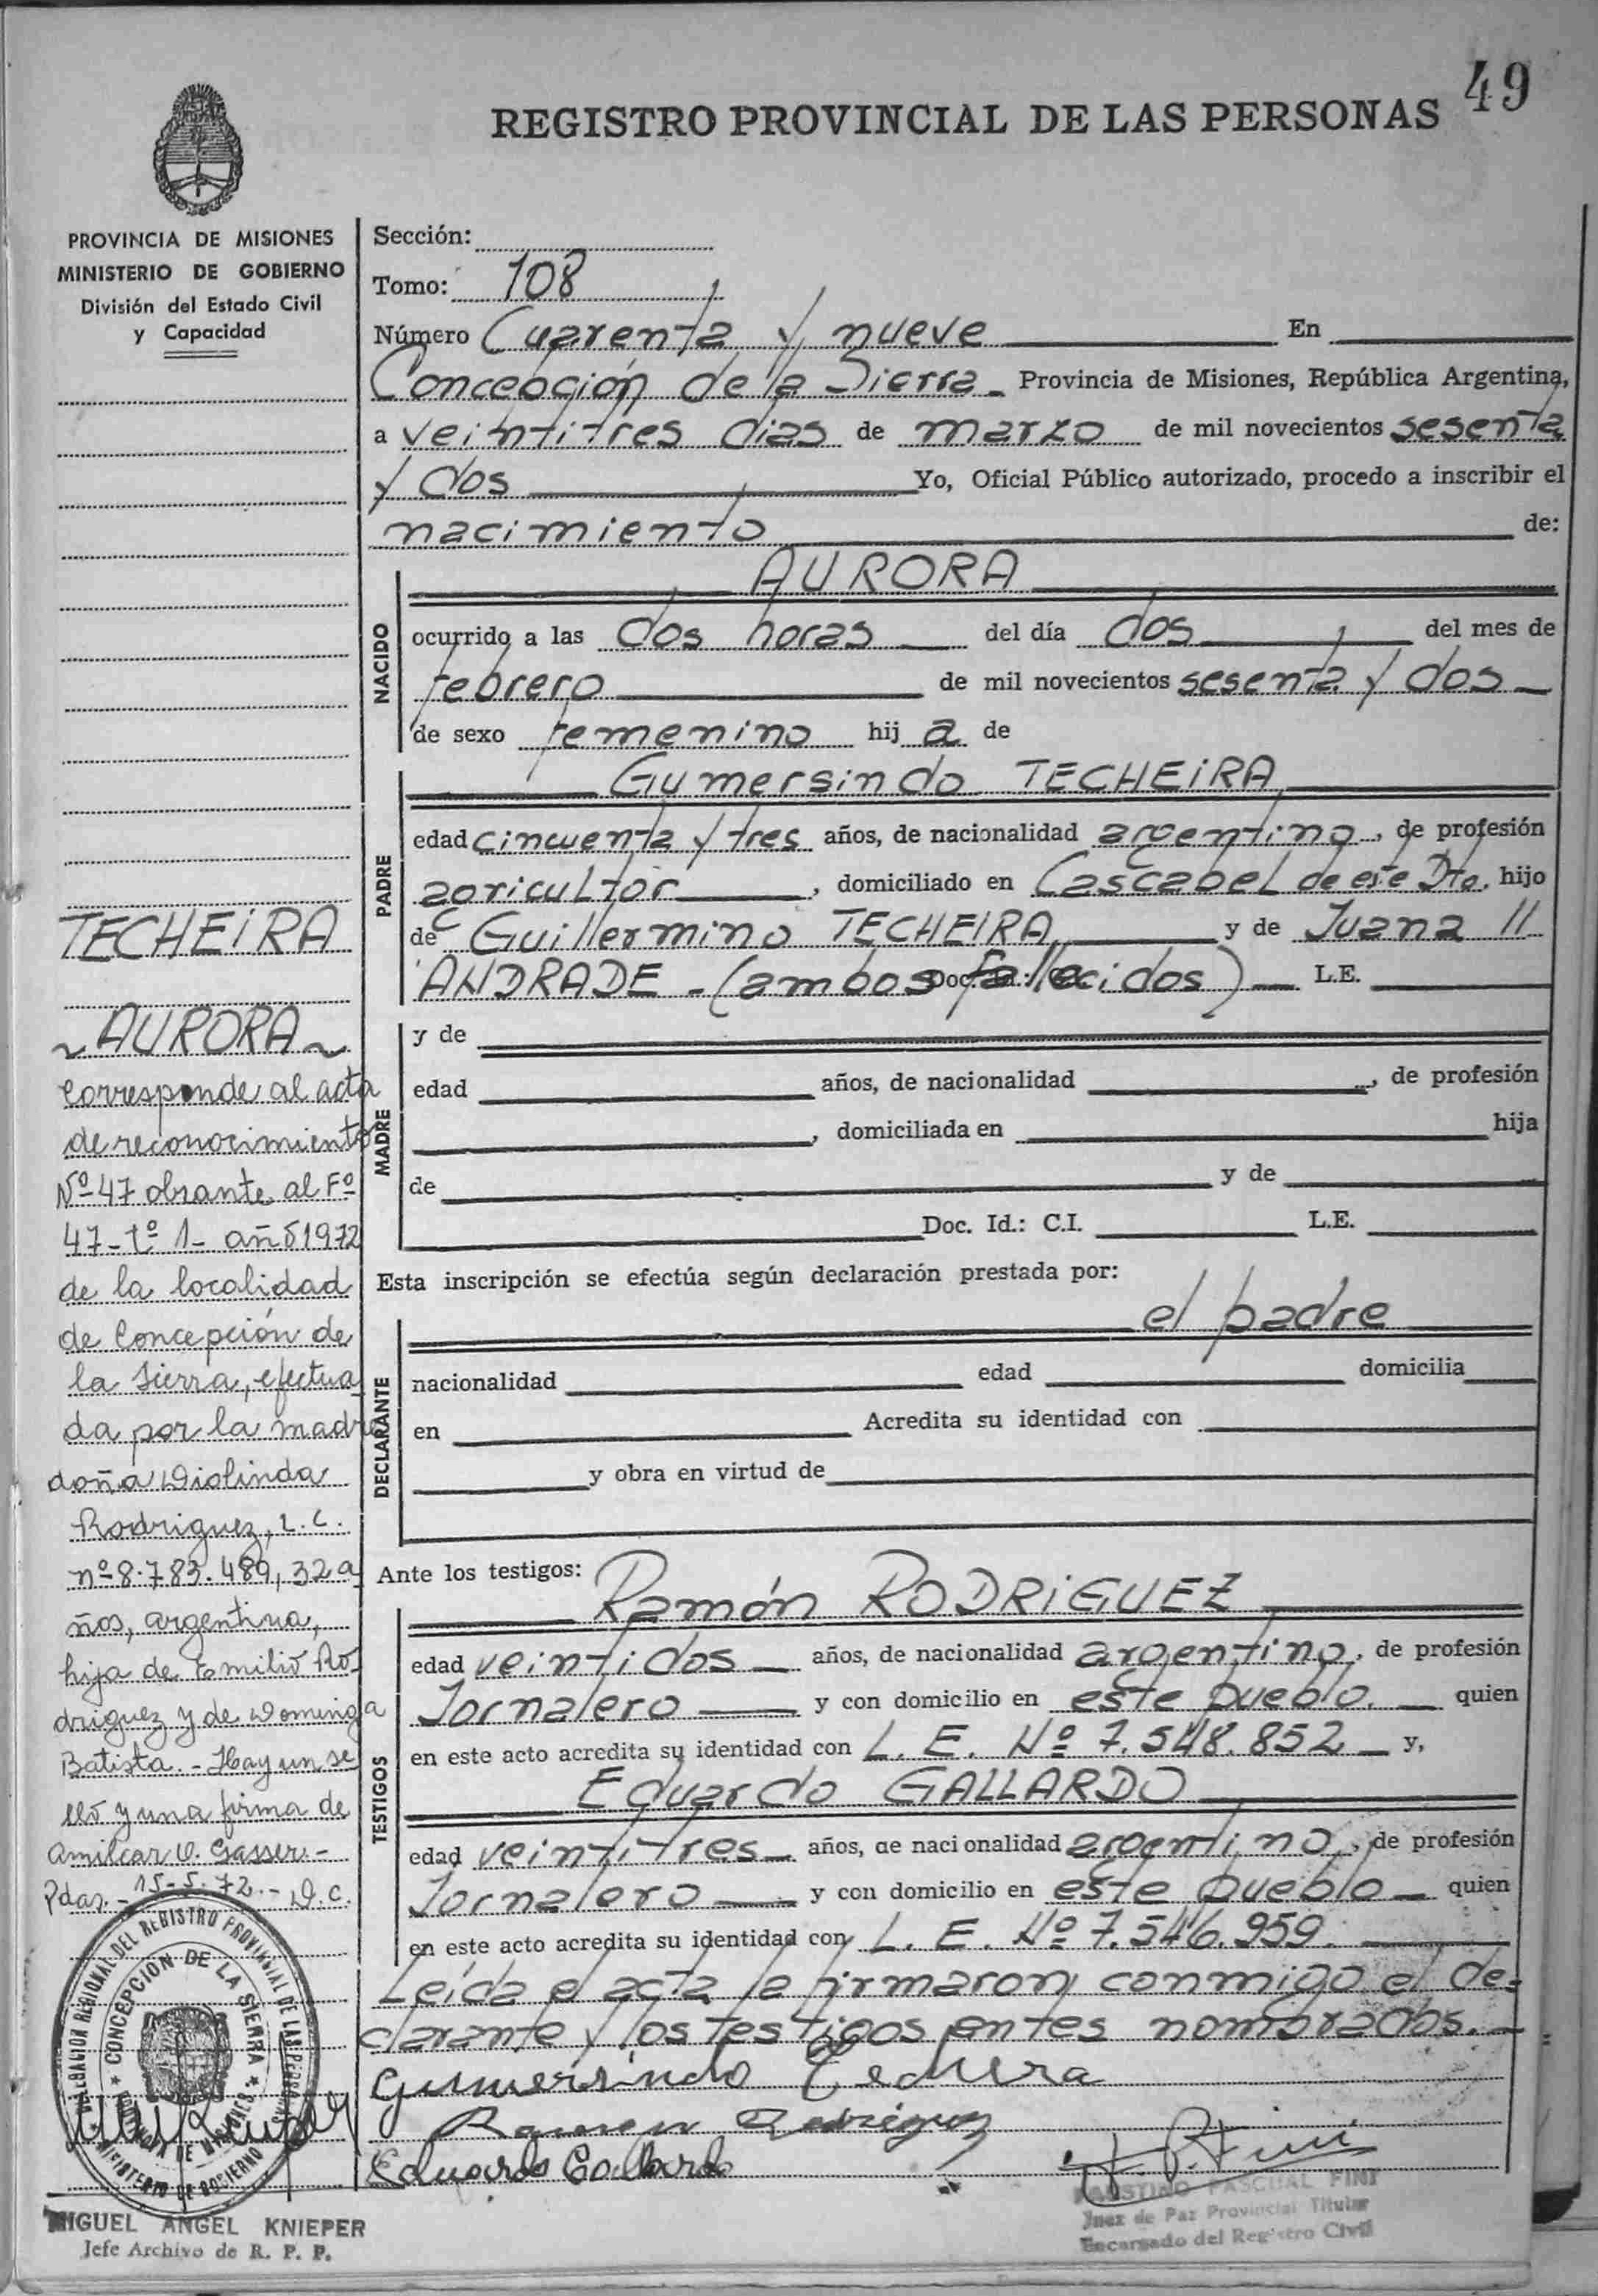 49
REGISTRO PROVINCIAL DE LAS PERSONAS
PROVINCIA DE MISIONES
MINISTERIO DE GOBIERNO
División del Estado Civil
y Capacidad
TECHEIRA
~ AURORA ~
Corresponde al acta
de reconocimiento
Nº 47 obrante al Fº
47 - tº 1 - año 1972
de la localidad
de Concepción de
la Sierra, efectua
da por la madre
doña Diolinda
Rodriguez, L.C.
nº 8.783.489, 32 a
ños, argentina,
hija de Emilio Ro
driguez y de Dominga
Batista. - Hay un se
llo y una firma de
Amilcar O. Gasser. -
Pdas. - 15-5-72. - D.C.
DELEGACION REGIONAL DEL REGISTRO PROVINCIAL DE LAS PERSONAS
CONCEPCION DE LA SIERRA
PROVINCIA DE MISIONES
MINISTERIO DE GOBIERNO
MIGUEL ANGEL KNIEPER
Jefe Archivo de R. P. P.
Sección:
Tomo: 108
Número Cuarenta y nueve En
Concepción de la Sierra - Provincia de Misiones, República Argentina,
a veintitres dias de marzo de mil novecientos sesenta
y dos Yo, Oficial Público autorizado, procedo a inscribir el
nacimiento de:
NACIDO
AURORA
ocurrido a las dos horas del día dos del mes de
febrero de mil novecientos sesenta y dos
de sexo femenino hij a de
PADRE
Gumersindo TECHEIRA
edad cincuenta y tres años, de nacionalidad argentino, de profesión
agricultor, domiciliado en Cascabel de este Dto. hijo
de Guillermino TECHEIRA y de Juana
ANDRADE - (ambos fallecidos) L.E.
MADRE
y de
edad años, de nacionalidad , de profesión
, domiciliada en hija
de y de
Doc. Id.: C.I. L.E.
Esta inscripción se efectúa según declaración prestada por:
DECLARANTE
el padre
nacionalidad edad domicilia
en Acredita su identidad con
y obra en virtud de
Ante los testigos:
TESTIGOS
Ramón RODRIGUEZ
edad veintidos años, de nacionalidad argentino, de profesión
Jornalero y con domicilio en este pueblo. quien
en este acto acredita su identidad con L. E. Nº 7.548.852 y,
Eduardo GALLARDO
edad veintitres años, de nacionalidad argentino, de profesión
Jornalero y con domicilio en este pueblo quien
en este acto acredita su identidad con L. E. Nº 7.546.959.
Leída el acta la firmaron conmigo el de-
clarante y los testigos antes nombrados. -
Gumersindo Techera
Ramon Rodriguez
Eduardo Gallardo
FAUSTINO PASCUAL FINI
Juez de Paz Provincial Titular
Encargado del Registro Civil